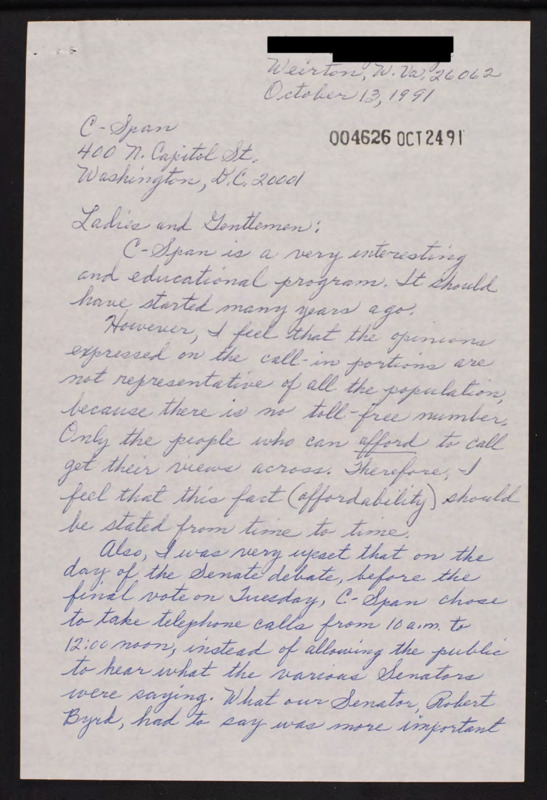 Weirton, W. Va. 26062
October 13, 1991
C-Span
400 N. Capitol St.
Washington, D.C. 20001
004626 OCT 24 91
Ladies and Gentlemen:
C-Span is a very interesting
and educational program. It should
have started many years ago.
However, I feel that the opinions
expressed on the call-in portions are
not representative of all the population,
because there is no toll-free number.
Only the people who can afford to call
get their views across. Therefore, I
feel that this fact (affordability) should
be stated from time to time.
Also, I was very upset that on the
day of the Senate debate, before the
final vote on Tuesday, C-Span chose
to take telephone calls from 10 a.m. to
12:00 noon, instead of allowing the public
to hear what the various Senators
were saying. What our Senator, Robert
Byrd, had to say was more important